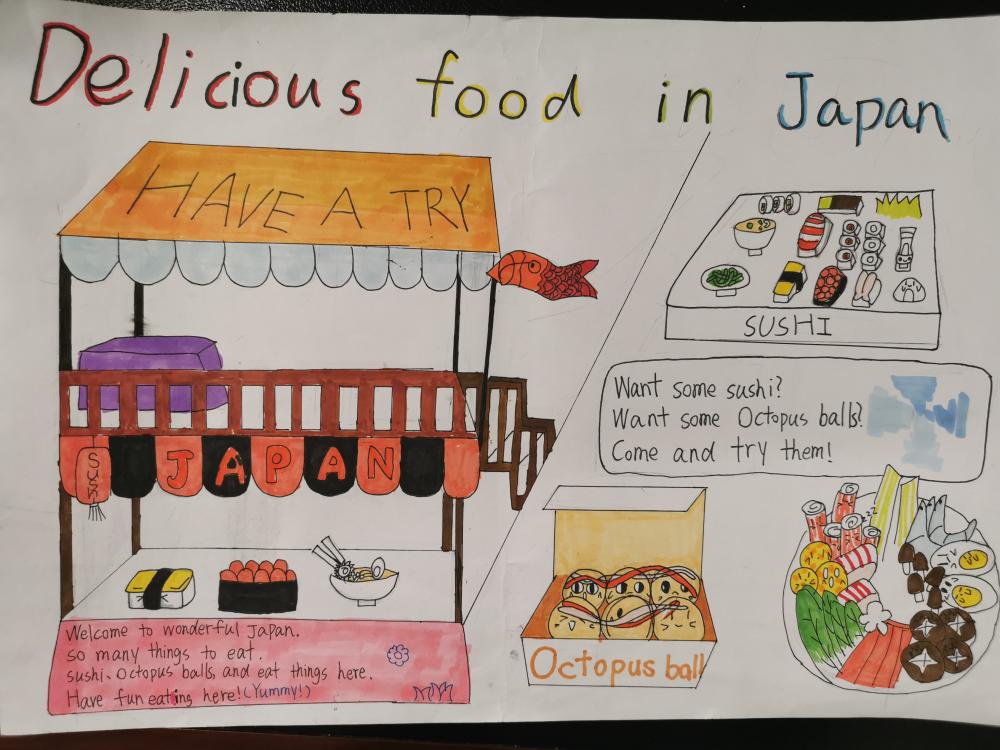 Delicious food in Japan
HAVE A TRY
SUSHI
Want some sushi?
Want some Octopus balls?
Come and try them!
SUSHI
JAPAN
Welcome to wonderful Japan.
so many things to eat.
sushi、Octopus balls, and eat things here.
Have fun eating here! (Yummy!)
Octopus ball
zzz